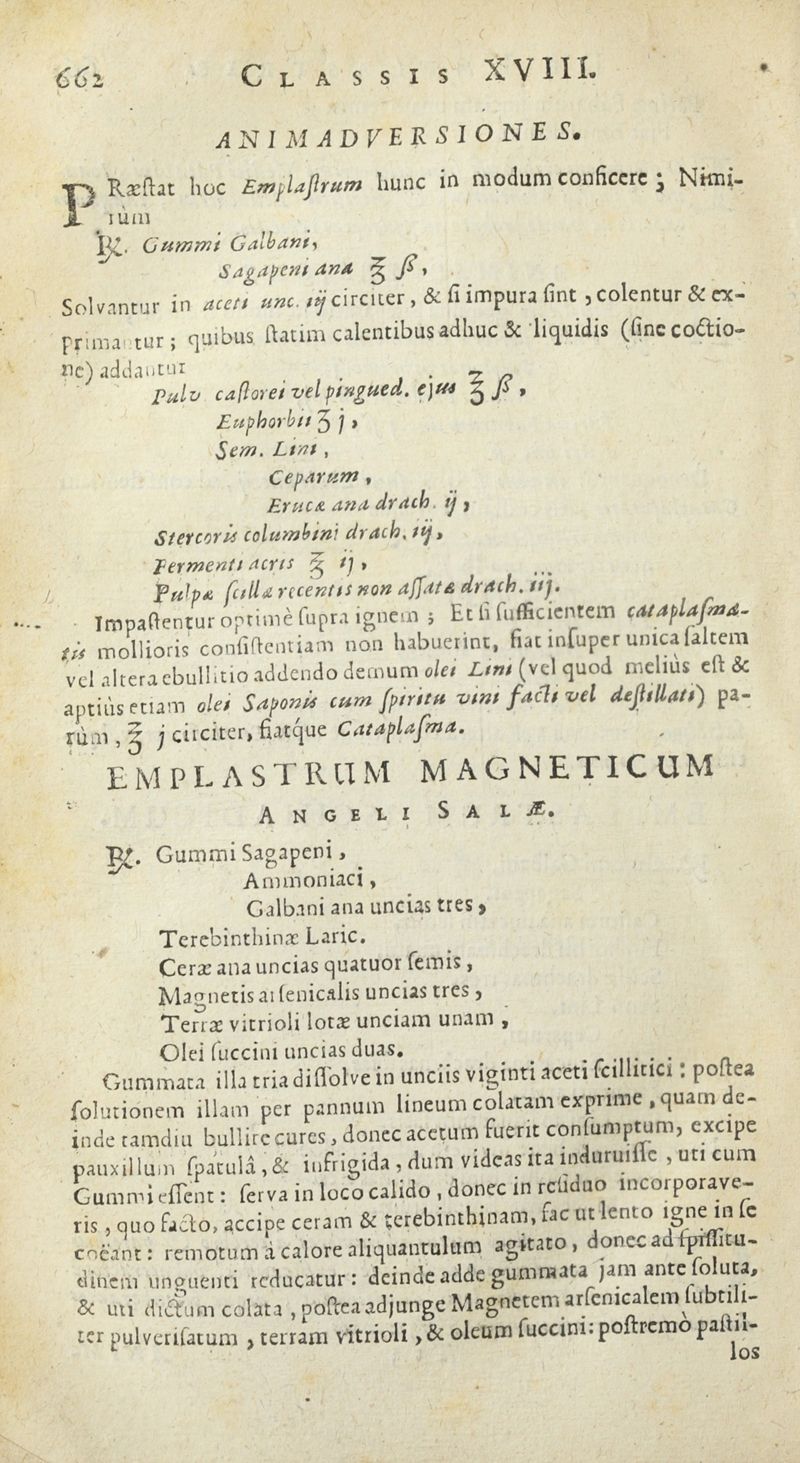 662 CLASSIS XVIII.
ANIMADVERSIONES.
PRæſtat hoc Emplaſtrum hunc in modum conficere; Nimi-
rùm
℞. Gummi Galbani,
Sagapeni ana ℥ ß,
Solvantur in aceti unc. iij circiter, & ſi impura ſint, colentur & ex-
primantur; quibus ſtatim calentibus adhuc & liquidis (ſine coctio-
ne) addantur
Pulv caſtorei vel pingued. ejus ℥ ß,
Euphorbii ʒ j,
Sem. Lini,
Ceparum,
Erucæ ana drach. ij,
Stercoris columbini drach. iij,
Fermenti acris ℥ ij,
Pulpæ ſcillæ recentis non aſſatæ drach. iij.
Impaſtentur optimè ſupra ignem; Et ſi ſufficientem cataplaſma-
tis mollioris conſiſtentiam non habuerint, fiat inſuper unica ſaltem
vel altera ebullitio addendo demum olei Lini (vel quod melius eſt &
aptiùs etiam olei Saponis cum ſpiritu vini facti vel deſtillati) pa-
rùm, ℥ j circiter, fiatque Cataplaſma.
EMPLASTRUM MAGNETICUM
ANGELI SALÆ.
℞. Gummi Sagapeni,
Ammoniaci,
Galbani ana uncias tres,
Terebinthinæ Laric.
Ceræ ana uncias quatuor ſemis,
Magnetis arſenicalis uncias tres,
Terræ vitrioli lotæ unciam unam,
Olei ſuccini uncias duas.
Gummata illa tria diſſolve in unciis viginti aceti ſcillitici: poſtea
ſolutionem illam per pannum lineum colatam exprime, quam de-
inde tamdiu bullire cures, donec acetum fuerit conſumptum, excipe
pauxillum ſpatulâ, & infrigida, dum videas ita induruiſſe, uti cum
Gummi eſſent: ſerva in loco calido, donec in reſiduo incorporave-
ris, quo facto, accipe ceram & terebinthinam, fac ut lento igne in ſe
coëant: remotum à calore aliquantulum agitato, donec ad ſpiſſitu-
dinem unguenti reducatur: deinde adde gummata jam ante ſoluta,
& uti dictum colata, poſtea adjunge Magnetem arſenicalem ſubtili-
ter pulveriſatum, terram vitrioli, & oleum ſuccini: poſtremò paſtil-
los